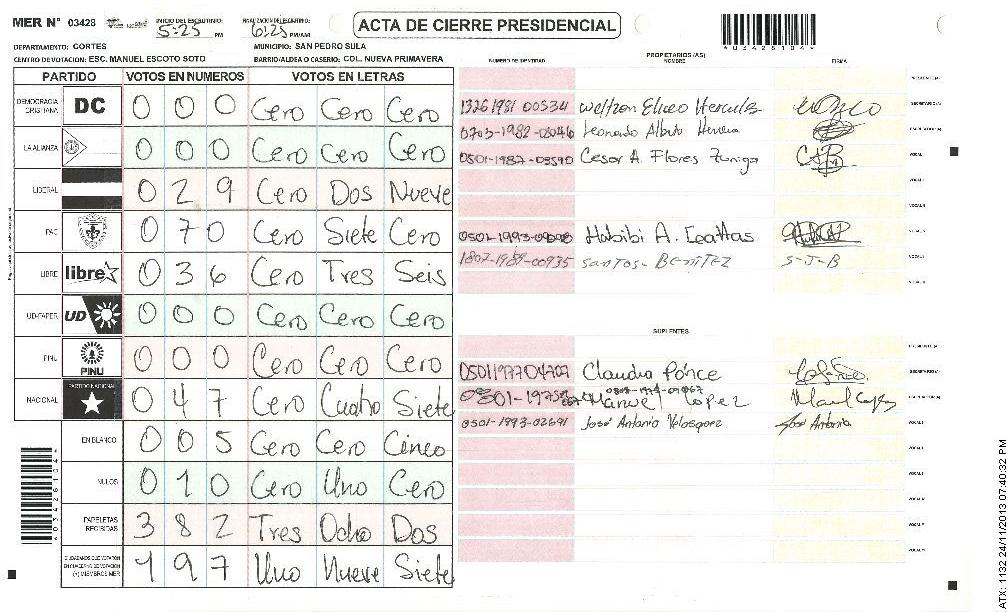 MER N° 03428
INICIO DEL ESCRUTINIO: 5:25 PM
FINALIZACION DEL ESCRUTINIO: 6:25 PM/AM
ACTA DE CIERRE PRESIDENCIAL
DEPARTAMENTO: CORTES
MUNICIPIO: SAN PEDRO SULA
CENTRO DE VOTACION: ESC. MANUEL ESCOTO SOTO
BARRIO/ALDEA O CASERIO: COL. NUEVA PRIMAVERA
PARTIDO VOTOS EN NUMEROS VOTOS EN LETRAS
DEMOCRACIA CRISTIANA DC 0 0 0 Cero Cero Cero
LA ALIANZA 0 0 0 Cero Cero Cero
LIBERAL 0 2 9 Cero Dos Nueve
PAC 0 7 0 Cero Siete Cero
LIBRE libre 0 3 6 Cero Tres Seis
UD-FAPER UD 0 0 0 Cero Cero Cero
PINU PINU 0 0 0 Cero Cero Cero
NACIONAL PARTIDO NACIONAL 0 4 7 Cero Cuatro Siete
EN BLANCO 0 0 5 Cero Cero Cinco
NULOS 0 1 0 Cero Uno Cero
PAPELETAS RECIBIDAS 3 8 2 Tres Ocho Dos
CIUDADANOS QUE VOTARON EN CUADERNO DE VOTACION (+) MIEMBROS MER 1 9 7 Uno Nueve Siete
NUMERO DE IDENTIDAD
PROPIETARIOS (AS)
NOMBRE
FIRMA
PRESIDENTE (A)
SECRETARIO (A)
Leonardo Alberto Herrera
ESCRUTADOR (A)
Cesar A. Flores Zuniga
VOCAL I
1807-1989-00935 Santos Benitez S-J-B
SUPLENTES
PRESIDENTE (A)
0501197704707 Claudia Ponce
SECRETARIO (A)
Manuel Lopez
ESCRUTADOR (A)
0501-1993-02691 José Antonio Velasquez José Antonio
ATX: 1132 24/11/2013 07:40:32 PM